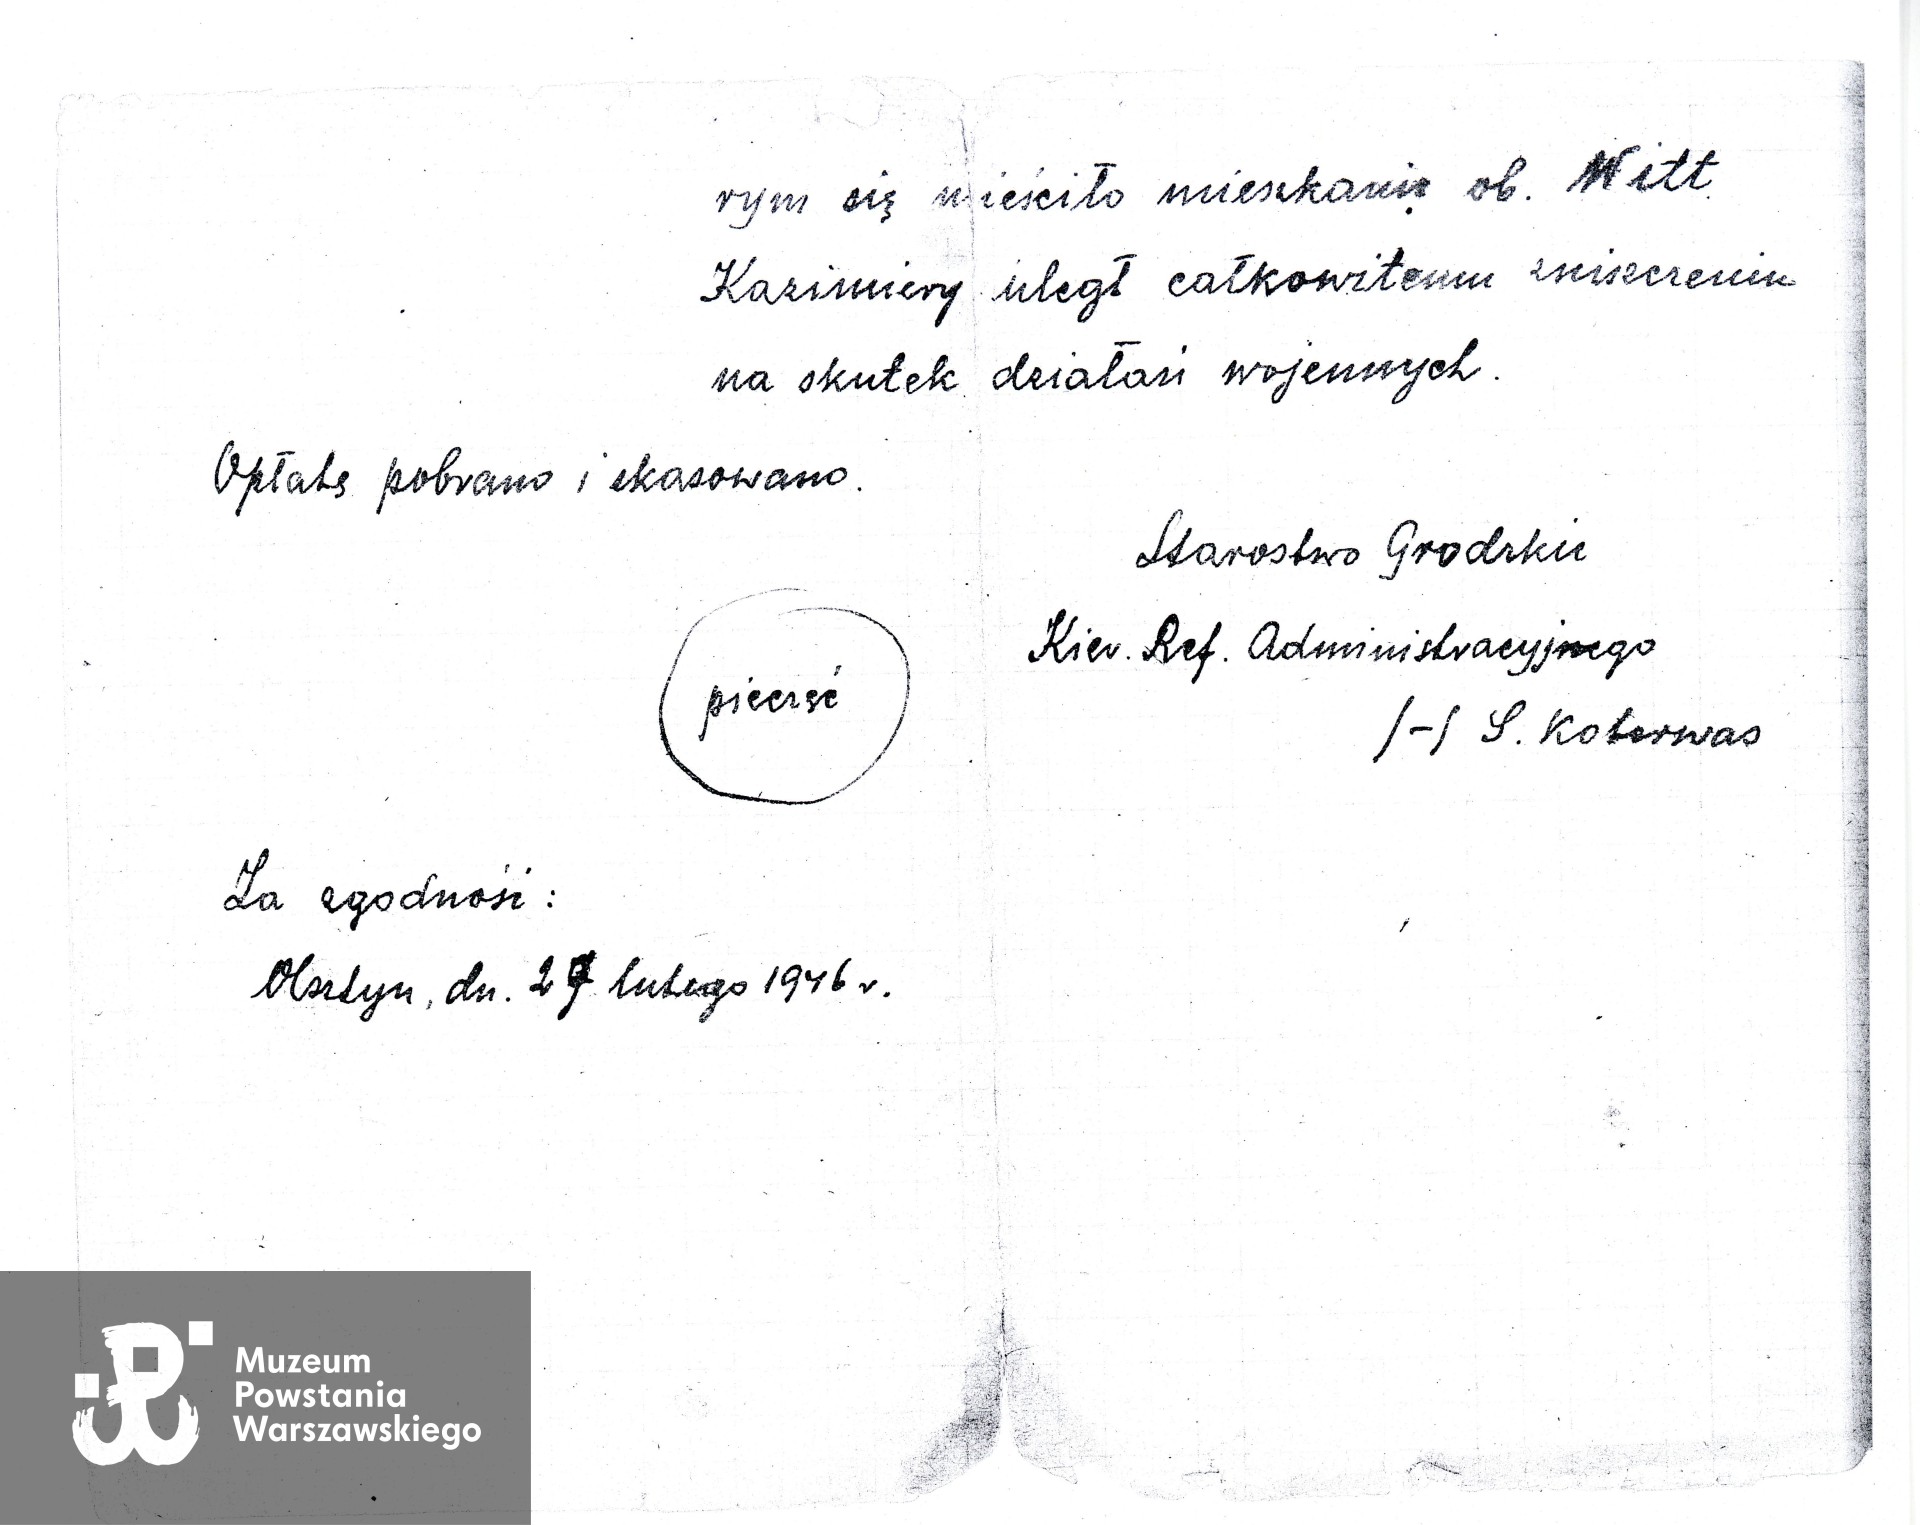 rym się mieściło mieszkanie ob. Witt
Kazimiery uległ całkowitemu zniszczeniu
na skutek działań wojennych.
Opłatę pobrano i skasowano.
Starostwo Grodzkie
Kier. Ref. Administracyjnego
pieczęć
/-/ S. Koterwas
Za zgodność:
Olsztyn, dn. 27 lutego 1946 r.
Muzeum
Powstania
Warszawskiego